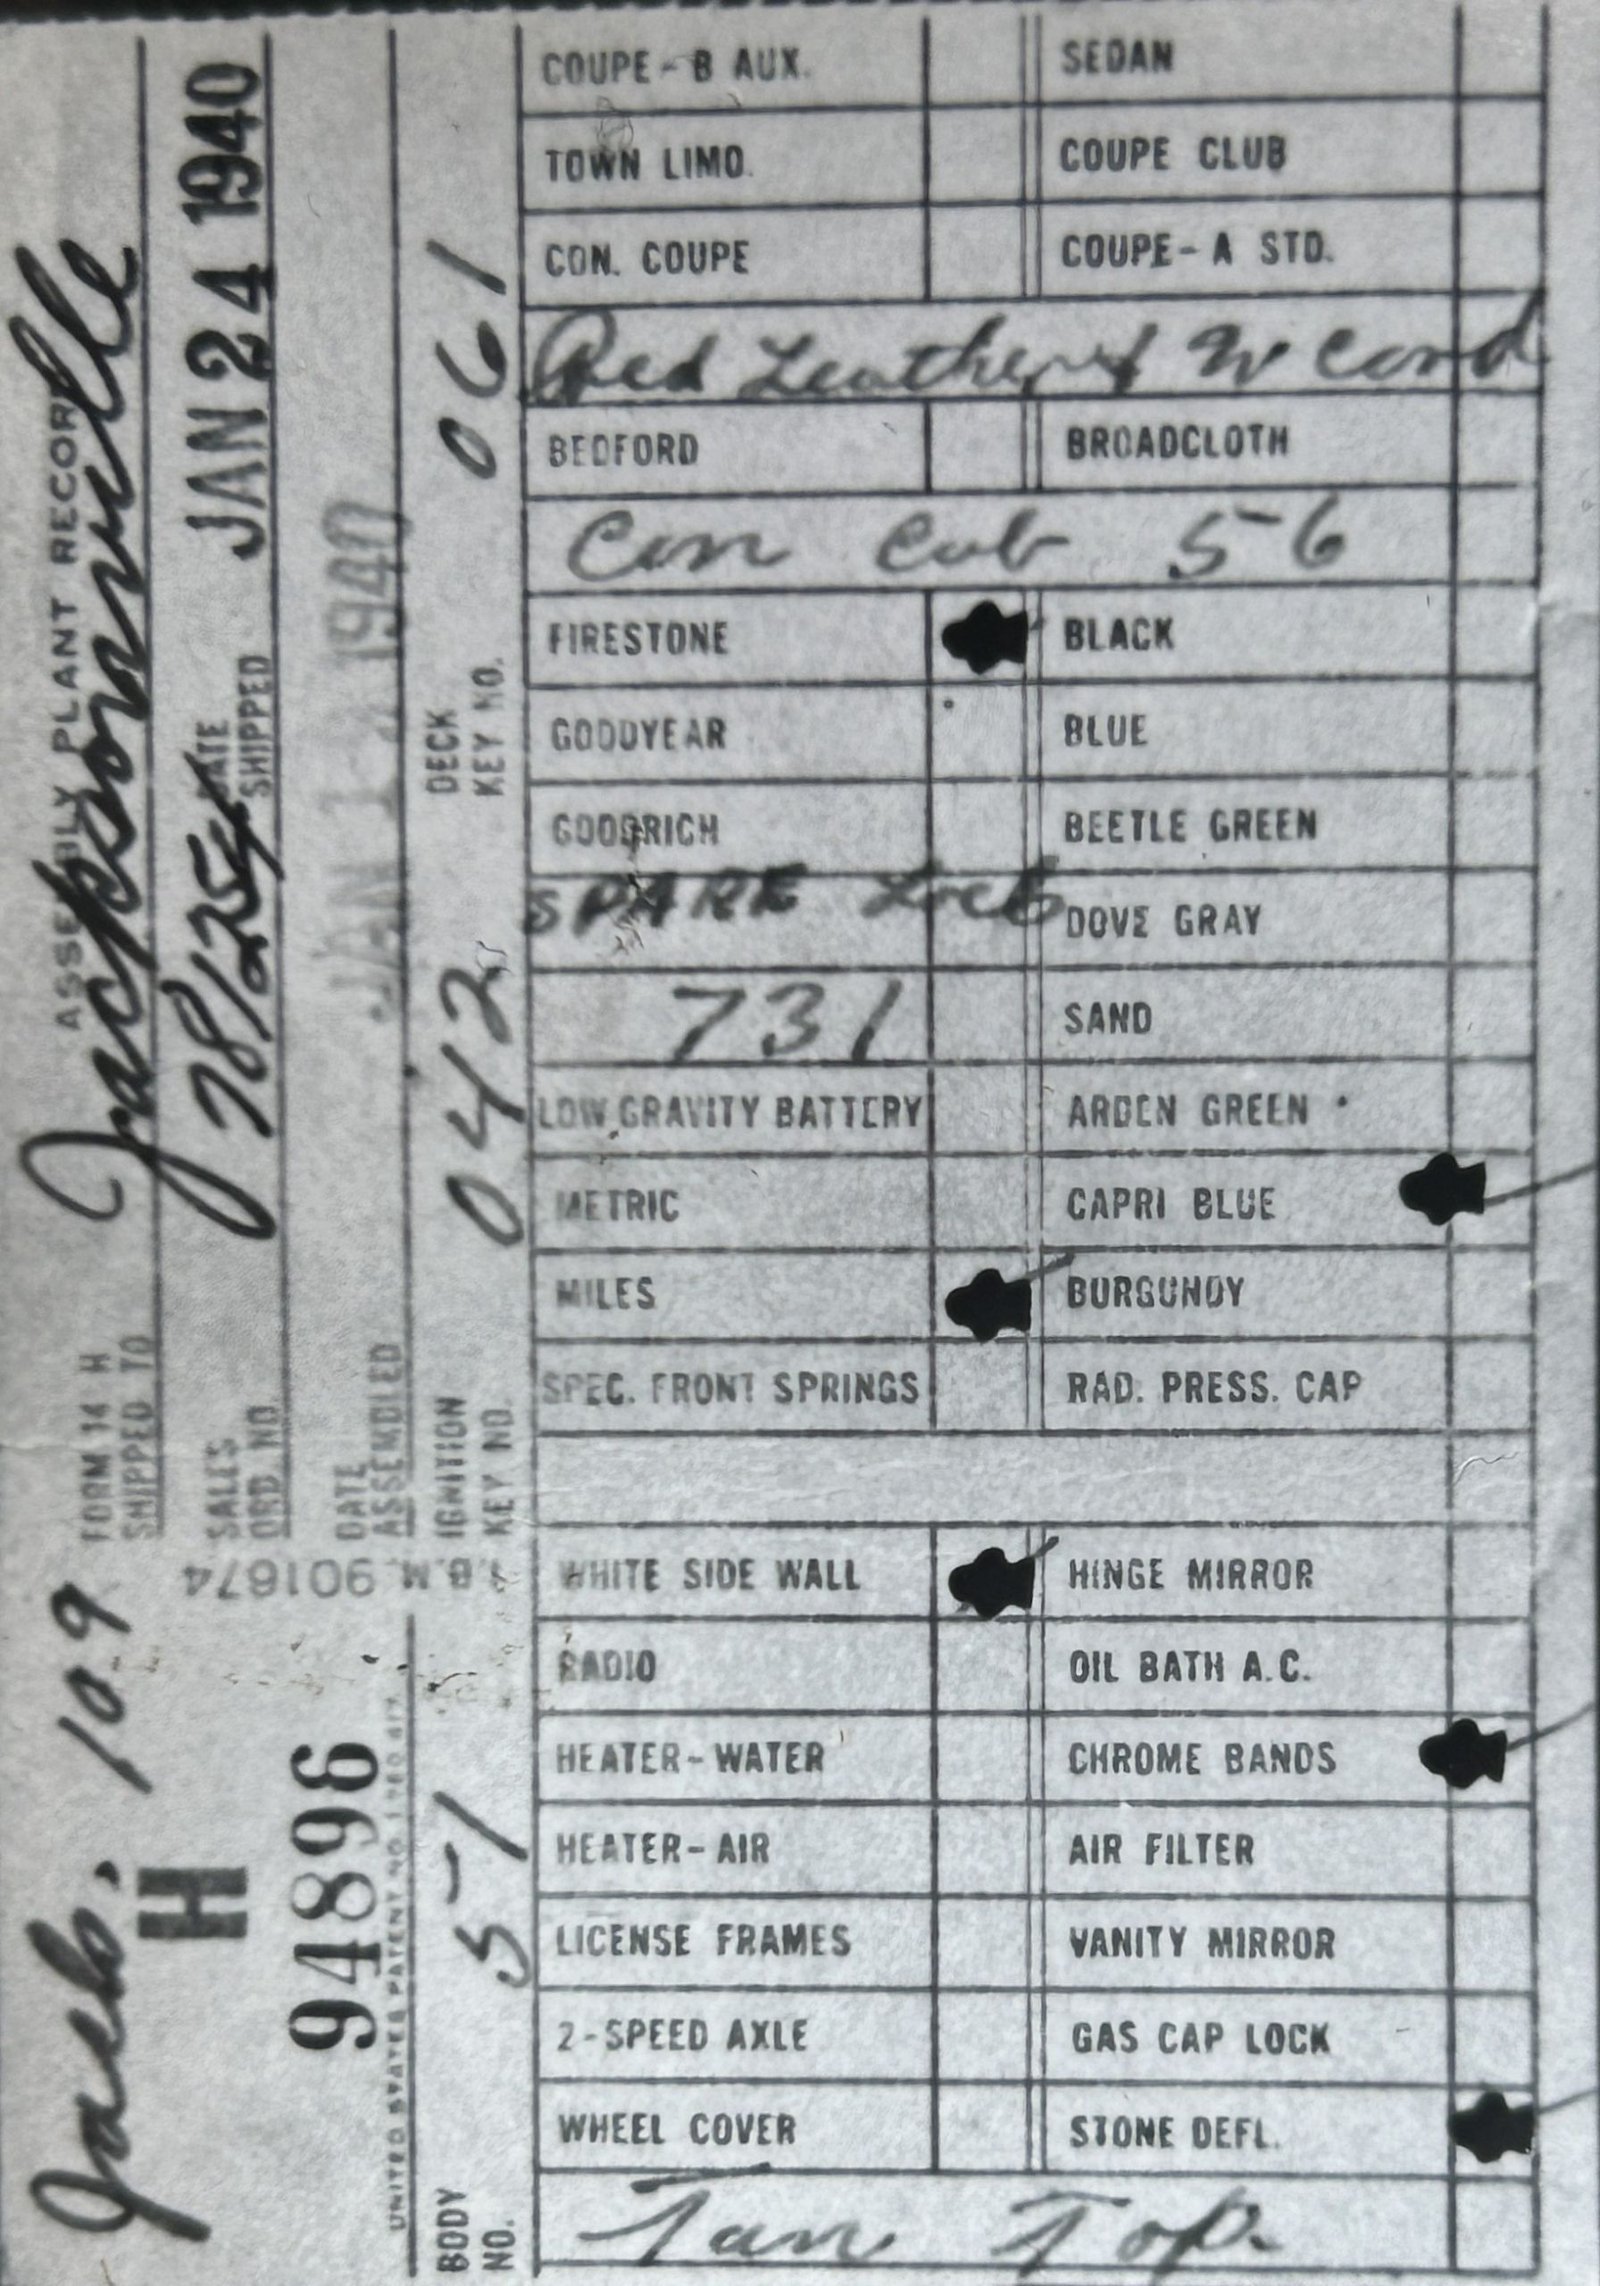 COUPE - B AUX. SEDAN
TOWN LIMO. COUPE CLUB
CON. COUPE COUPE - A STD.
Red Leather
BEDFORD BROADCLOTH
Con Cab 56
FIRESTONE BLACK
GOODYEAR BLUE
GOODRICH BEETLE GREEN
SPARE Lock DOVE GRAY
731 SAND
LOW GRAVITY BATTERY ARDEN GREEN
METRIC CAPRI BLUE
MILES BURGUNDY
SPEC. FRONT SPRINGS RAD. PRESS. CAP
WHITE SIDE WALL HINGE MIRROR
RADIO OIL BATH A.C.
HEATER - WATER CHROME BANDS
HEATER - AIR AIR FILTER
LICENSE FRAMES VANITY MIRROR
2 - SPEED AXLE GAS CAP LOCK
WHEEL COVER STONE DEFL.
Tan Top
109
FORM 14 H ASSEMBLY PLANT RECORD
SHIPPED TO Jacksonville
H
94896
SALES ORD. NO. DATE SHIPPED JAN 24 1940
DATE ASSEMBLED JAN 1940
UNITED STATES PATENT NO.
I.B.M. 901674
BODY NO. 51
IGNITION KEY NO. 042
DECK KEY NO. 061